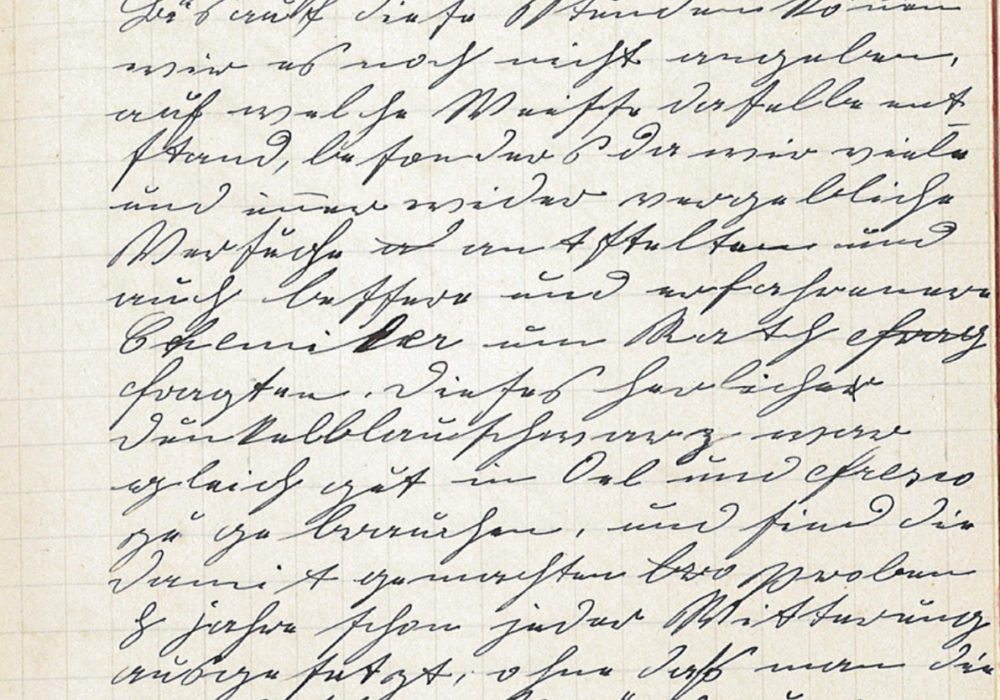 Bis auf diese Stunden können
wir es noch nicht angeben,
auf welche Weisse daselbe ent-
stand, besonders da wir viele
und im̅er wider vergebliche
Versuche a anstsstelten und
auch bessere und erfahrenere
Chemiker um Rath frag
fragten. Dieses herlicher
dunkelblblauschwarz war
gleich gut in Oel und fresco
zu ge brauchen, und sind die
damit gemachten bro proben
8 jahre schon jeder Witterung
ausgesetzt, ohne dass man die